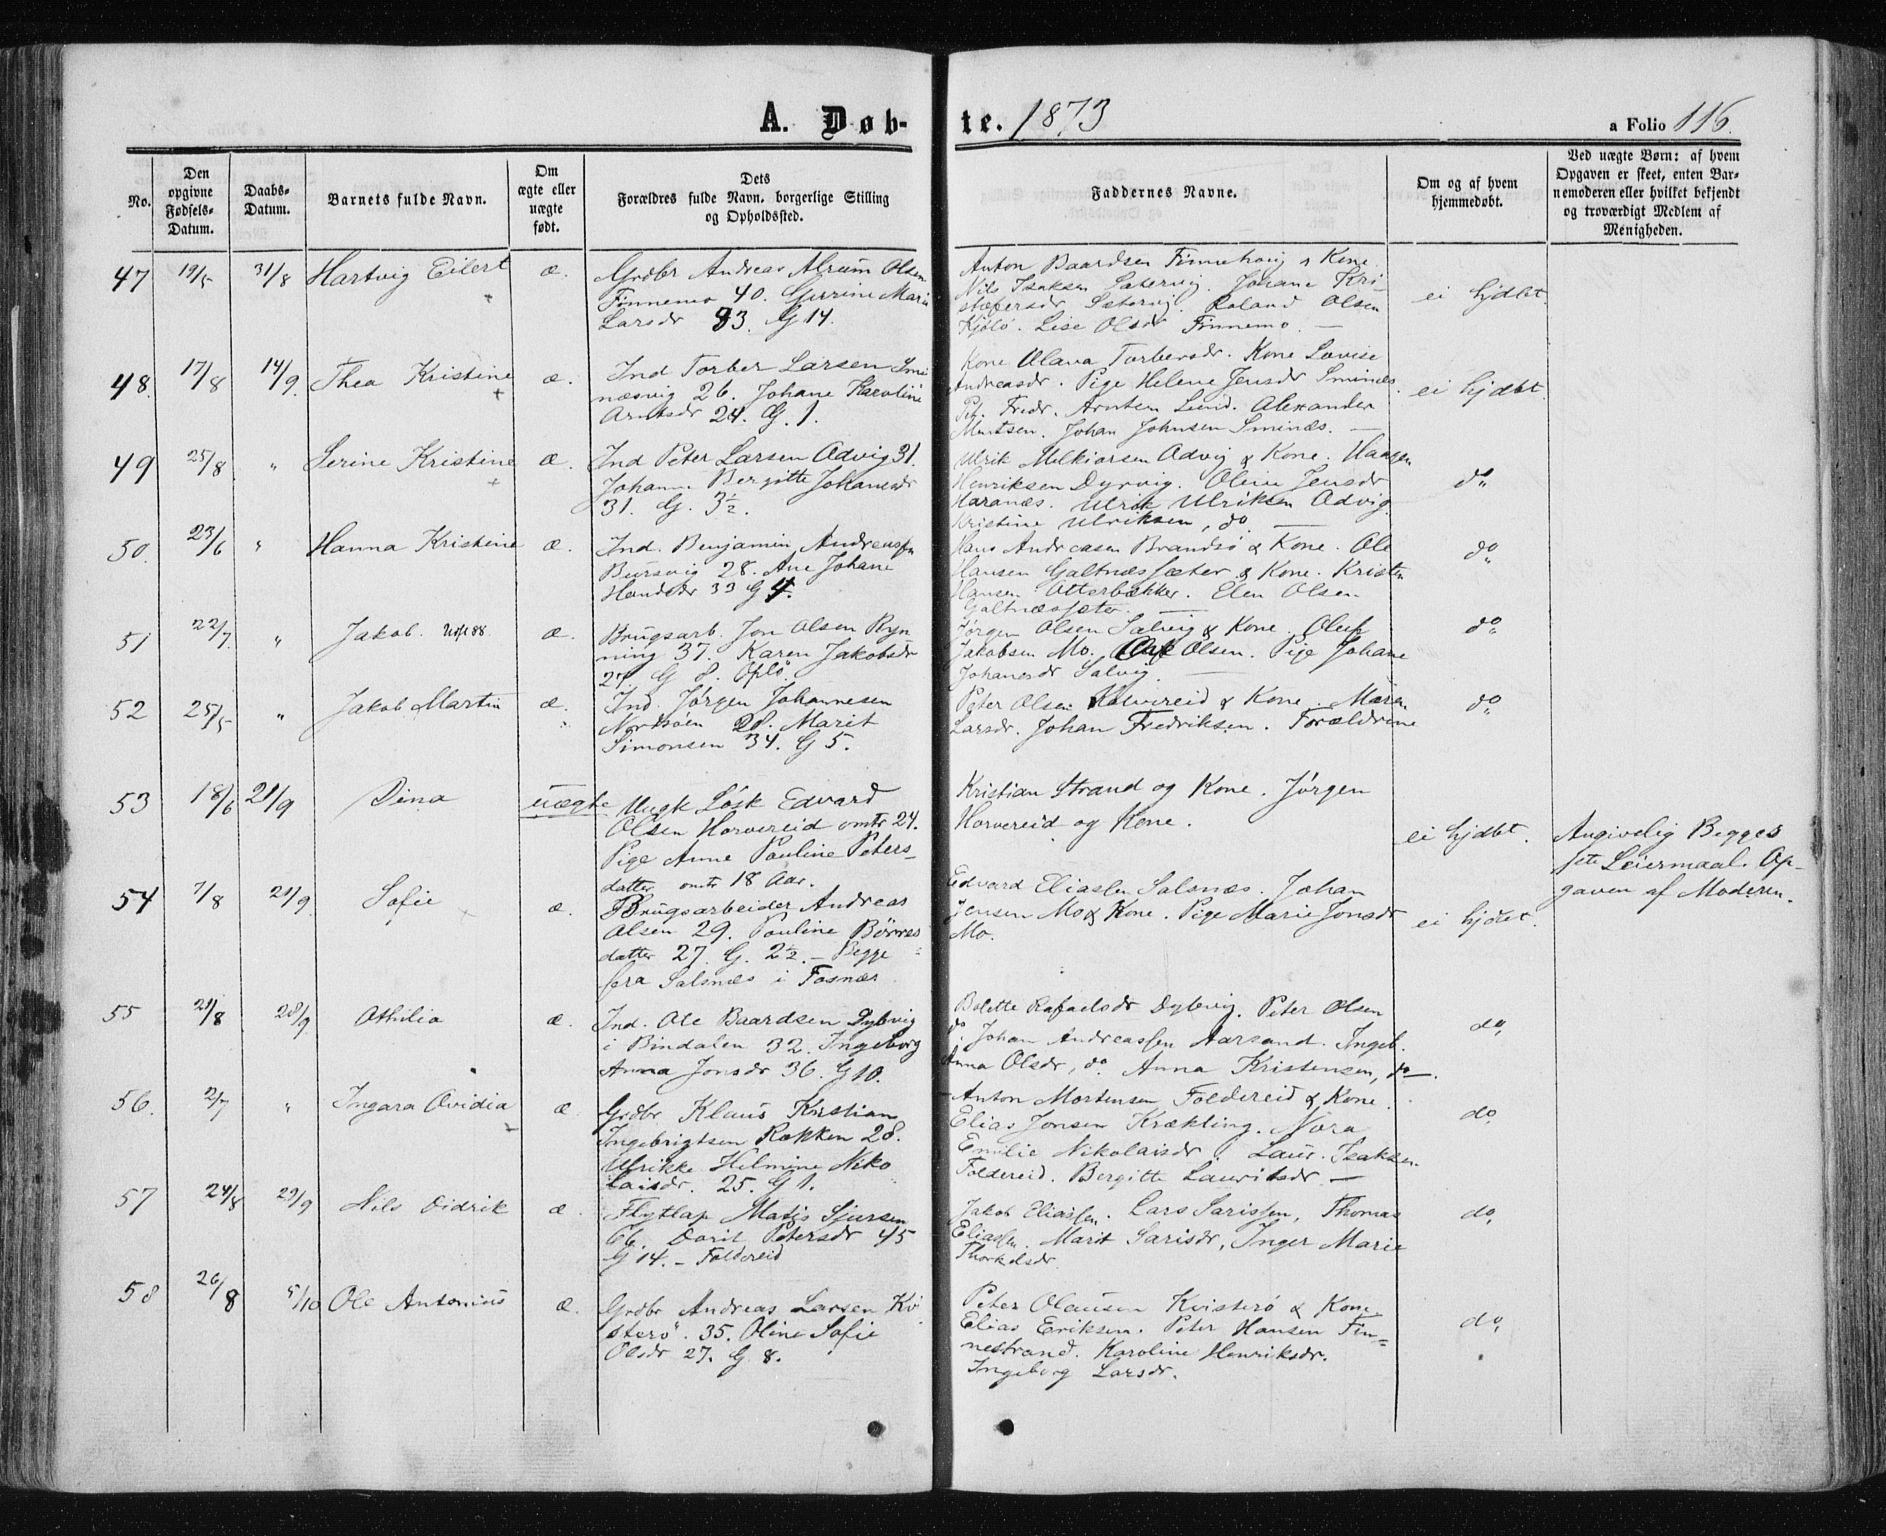 A. Døb-
te. 1873
a Folio 116.
No.
Den
opgivne
Fødsels-
Datum.
Daabs-
Datum.
Barnets fulde Navn.
Om
ægte eller
uægte
født.
Dets
Forældres fulde Navn, borgerlige Stilling
og Opholdssted.
Faddernes Navne.
Om og af hvem
hjemmedøbt.
Ved uægte Børn: af hvem
Opgaven er skeet, enten Bar-
nemoderen eller hvilket bekjendt
og troværdigt Medlem af
Menigheden.
47 19/5 31/8 Hartvig Eilert æ.
Grdbr Andreas Olsen
Finnemo 40. Marie
Larsdr 33. G 14.
Anton Baardsen Finnehoug & Kone.
Nils Isaksen Sætervig. Johane Kri-
stofersdr Sætervig. Roland Olsen
Kjølø. Lise Olsdr Finnemo. —
ei hjdbt.
48. 17/8 14/9. Thea Kristine æ.
Ind Torber Larsen Smi
næsvig 26. Johane Karoline
Arntsdr 24. G. 1.
Kone Olava Torbersdr. Kone Lovise
Andreasdr. Pige Helene Jensdr Sminæs.
Pet. Fredr. Arntsen Lund. Alexander
Johan Johnsen Sminæs. —
ei hjdbt.
49 25/8 " Serine Kristine æ.
Ind Peter Larsen Advig 31.
Johanna Bergitte Johansdr
31. G. 3½.
Ulrik Melkiorsen Advig & Kone. Haagen
Henriksen Dyrvig. Oline Jensdr
Maranæs. Ulrik Ulriksen Advig
Kristine Ulriksen, do. —
do
50. 23/6 " Hanna Kristine æ.
Ind. Benjamin Andreassen
Bursvig 28. Ane Johane
Hansdr 33 G 4.
Hans Andreasen Brandsø & Kone. Ole
Hansen Galtnæssæter & Kone. Kristen
Hansen Otterbækker. Elen Olsen
Galtnæssæter. —
do
51 22/7. " Jakob. Udfl 88. æ.
Brugsarb. Jon Olsen Ryn
ning 37. Karen Jakobsdr
27. G 8. Oplø.
Jørgen Olsen Salvig & Kone. Oluf
Jakobsen Mo. Olsen. Pige Johane
Johansdr Salvig. —
do
52 25/5 " Jakob Martin æ.
Ind. Jørgen Johannesen
Marit
Simonsen 34. G 5.
Peter Olsen Horvereid & Kone. Maren
Larsdr. Johan Fredriksen. Forældrene
do
53 18/6 21/9 Dina uægte
Ungk Løsk Edvard
Olsen Horvereid omtr 24.
Pige Anne Pauline Peters-
datter omtr 18 Aar.
Kristian Strand og Kone. Jørgen
Horvereid og Kone.
ei hjdbt.
Angivelig Begges
1ste Leiermaal. Op-
gaven af Moderen.
54 7/8 21/9 Sofie æ.
Brugsarbeider Andreas
Olsen 29. Pauline Børres-
datter 27. G. 2½. — Begge
fra Salsnæs i Fosnæs
Edvard Eliassen Salsnæs. Johan
Jensen Mo & Kone. Pige Marie Jonsdr
Mo.
ei hjdbt.
55 21/8 28/9 Othilia æ.
Ind. Ole Baardsen Dybvig
i Bindalen 32. Ingeborg
Anna Jonsdr 36. G 10.
Bolette Rafaelsdr Dybvig. Peter Olsen
do. Johan Andreassen Aarsand. Ingeb.
Anna Olsdr, do. Anna Kristensen, do —.
do.
56. 2/7 " Ingara Ovidia æ
Grdbr Klaus Kristian
Ingebrigtsen Rækken 28.
Ulrikke Helmine Niko
laisdr. 25. G 1.
Anton Mortensen Foldereid & Kone.
Elias Jonsen Krækling. Nora
Emilie Nikolaisdr. Laur. Isaksen
Foldereid. Bergitte Lauritsdr. —
do.
57 24/8 29/9 Nils Didrik æ.
Flytlap Matis Sjursen
66. Dorit Petersdr 45
G 14. — Foldereid
Jakob Eliassen. Lars Sarissen, Thomas
Eliassen. Marit Sarisdr, Inger Marie
Thorkelsdr.
do.
58 26/8 5/10 Ole Antonius æ.
Grdbr Andreas Larsen Kvi
sterø. 35. Oline Sofie
Olsdr 27. G 8.
Peter Olausen Kvisterø & Kone.
Elias Eriksen. Peter Hansen Fin-
nestrand. Karoline Henriksdr.
Ingeborg Larsdr.
do.